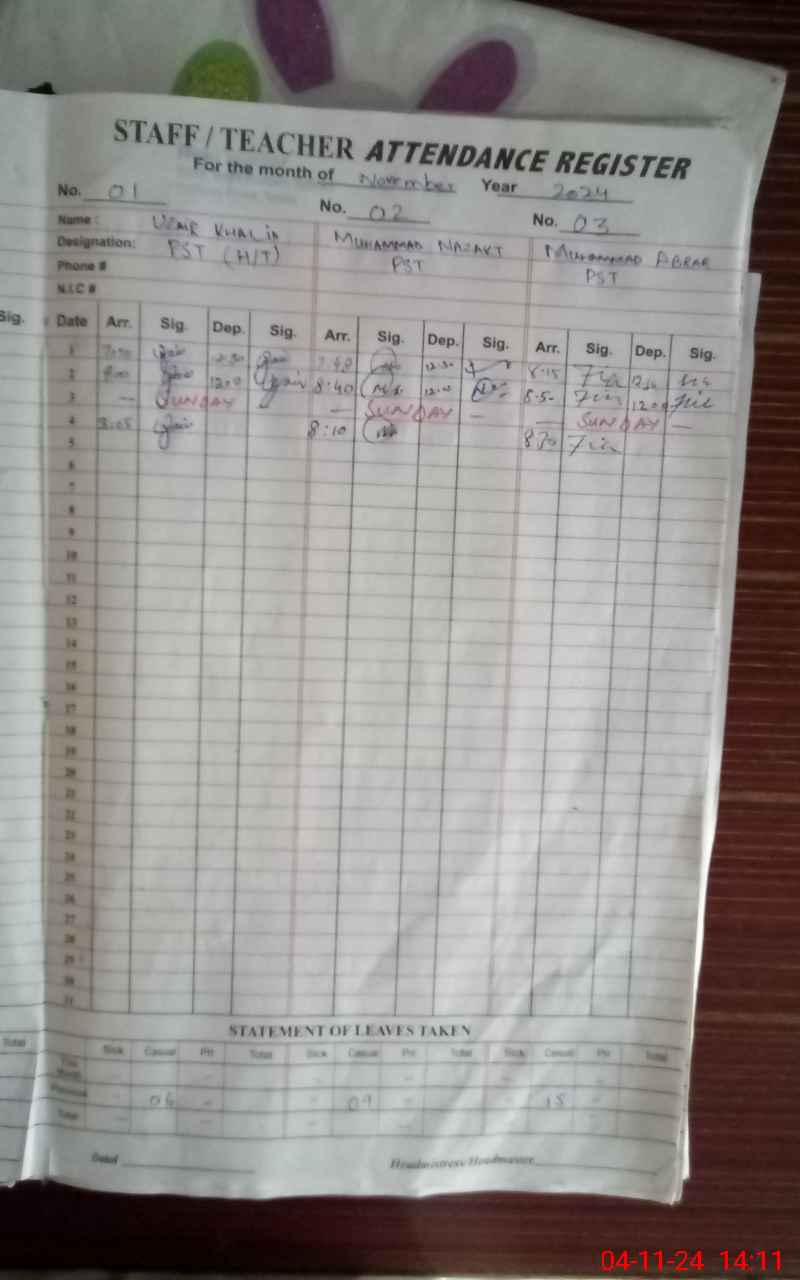 STAFF / TEACHER ATTENDANCE REGISTER
For the month of November Year 2024
No. 01 No. 02 No. 03
Name: UZAIR KHALID MUHAMMAD NAZAKT MUHAMMAD ABRAR
Designation: PST (H/T) PST PST
Phone #
N.I.C #
Sig. Date Arr. Sig. Dep. Sig. Arr. Sig. Dep. Sig. Arr. Sig. Dep. Sig.
1 12:30 12:30 8:15
2 8:00 12:00 8:40 12:00 8:50 12:00
3 — SUNDAY — SUNDAY — — SUNDAY —
4 8:05 8:10 8:20
5
6
7
8
9
10
11
12
13
14
15
16
17
18
19
20
21
22
23
24
25
26
27
28
29
30
31
STATEMENT OF LEAVES TAKEN
Total Sick Casual Pri Total Sick Casual Pri Total Sick Casual Pri Total
This Month
Previous 04 09 15
Total
Dated Headmistress/Headmaster
04-11-24 14:11